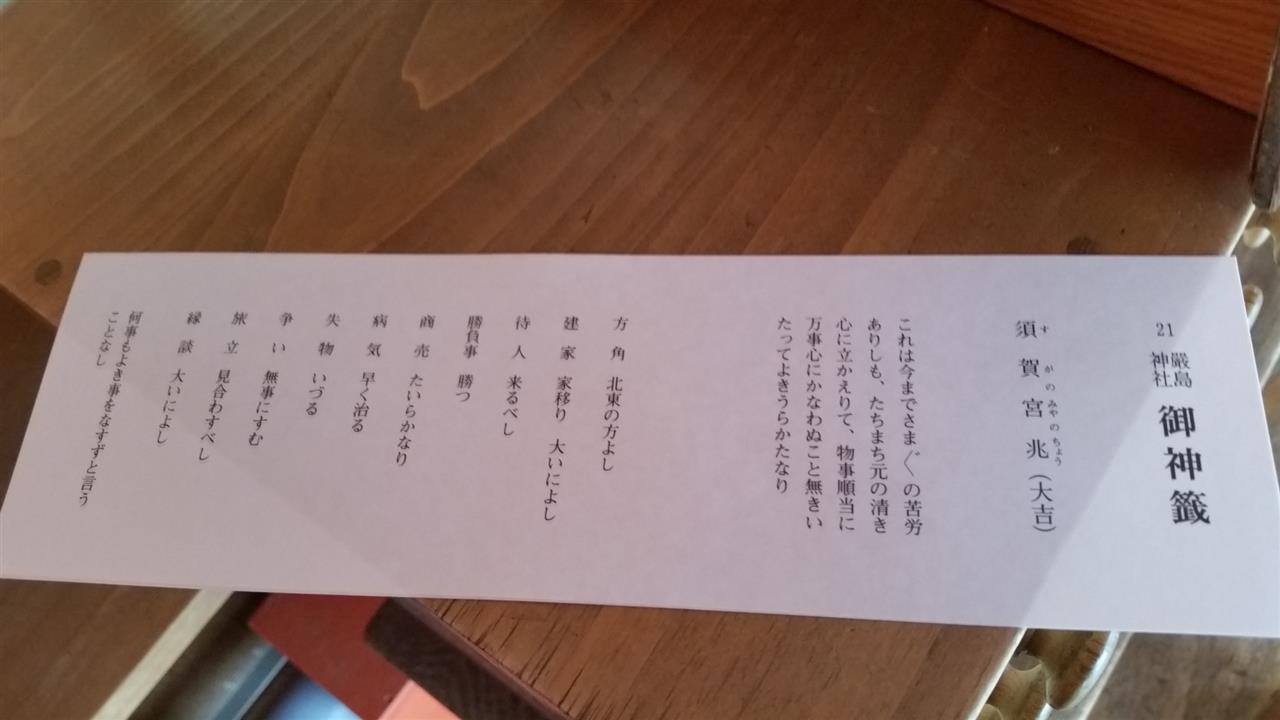 21 嚴島神社 御神籤
須賀宮兆(大吉)
すがのみやのちょう
これは今までさま〴〵の苦労
ありしも、たちまち元の清き
心に立かえりて、物事順当に
万事心にかなわぬこと無きい
たってよきうらかたなり
方角 北東の方よし
建家 家移り 大いによし
待人 来るべし
勝負事 勝つ
商売 たいらかなり
病気 早く治る
失物 いづる
争い 無事にすむ
旅立 見合わすべし
縁談 大いによし
何事もよき事をなすずと言う
ことなし